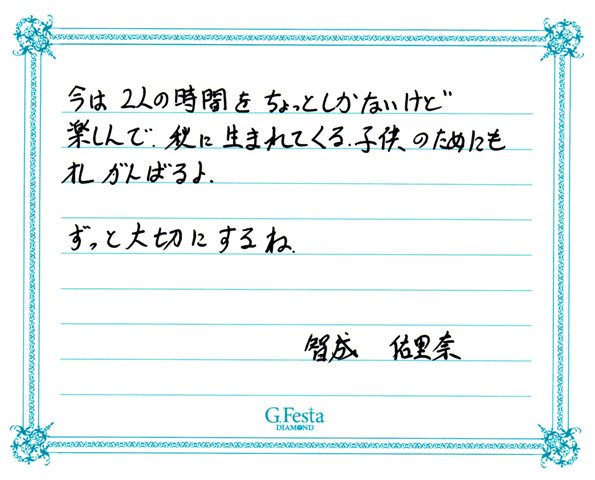 今は 2人の時間を ちょっとしかないけど
楽しんで、秋に生まれてくる、子供、のためにも
オレ がんばるよ、
ずっと大切にするね、
智成 佑里奈
G.Festa
DIAMOND